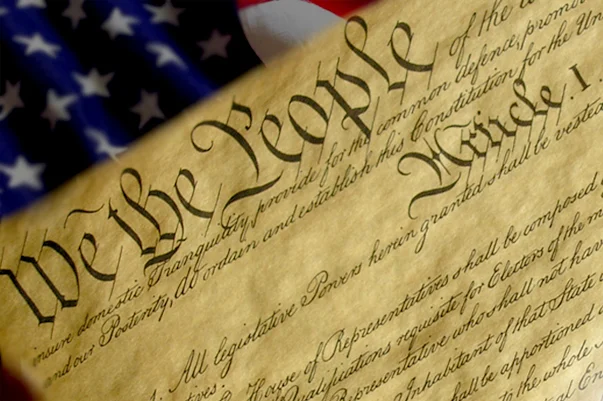 We the People of the
insure domestic Tranquility, provide for the common defence, promo
and our Posterity, do ordain and establish this Constitution for the Un
Article. I.
. 1. All legislative Powers herein granted shall be vested
House of Representatives shall be composed
Qualifications requisite for Electors of the m
Representative who shall not hav
Inhabitant of that State
shall be apportioned
to the whole